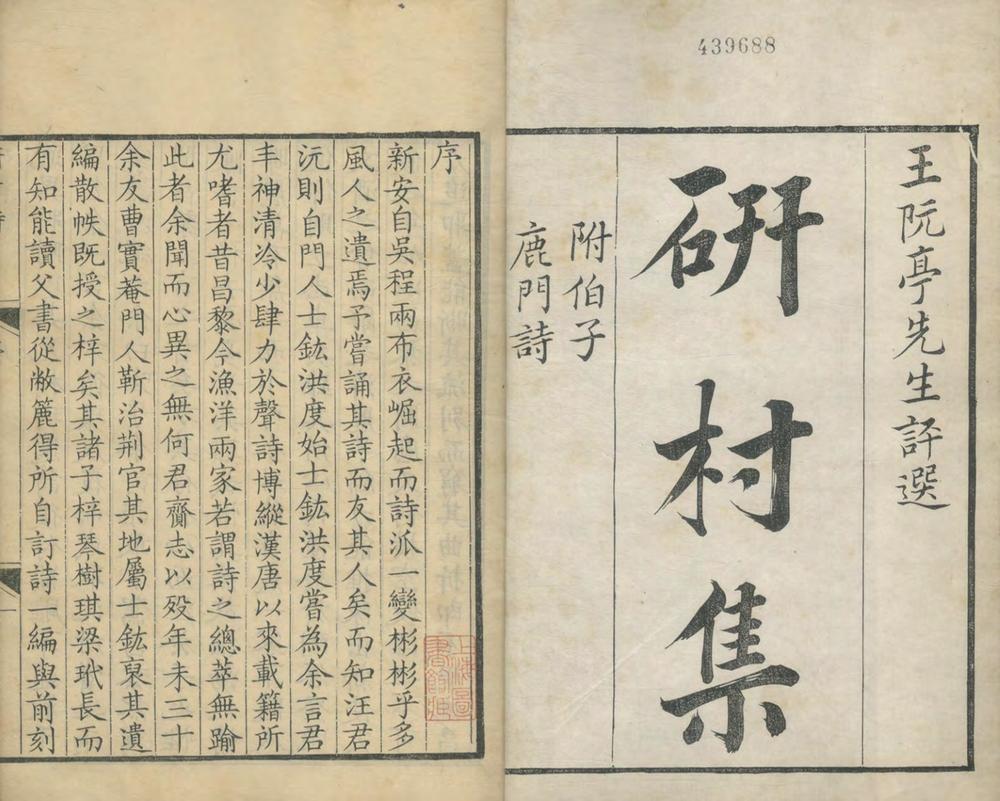 439688
王阮亭先生評選
研村集
附伯子
鹿門詩
序
新安自吳程兩布衣崛起而詩派一變彬彬乎多
風人之遺焉予嘗誦其詩而友其人矣而知汪君
沅則自門人士鈜洪度始士鈜洪度嘗為余言君
丰神清泠少肆力於聲詩博縱漢唐以來載籍所
尤嗜者昔昌黎今漁洋兩家若謂詩之總萃無踰
此者余聞而心異之無何君齎志以歿年未三十
余友曹實菴門人靳治荆官其地屬士鈜裒其遺
編散帙既授之梓矣其諸子梓琴樹琪梁玳長而
有知能讀父書從敝簏得所自訂詩一編與前刻
上海圖書館藏